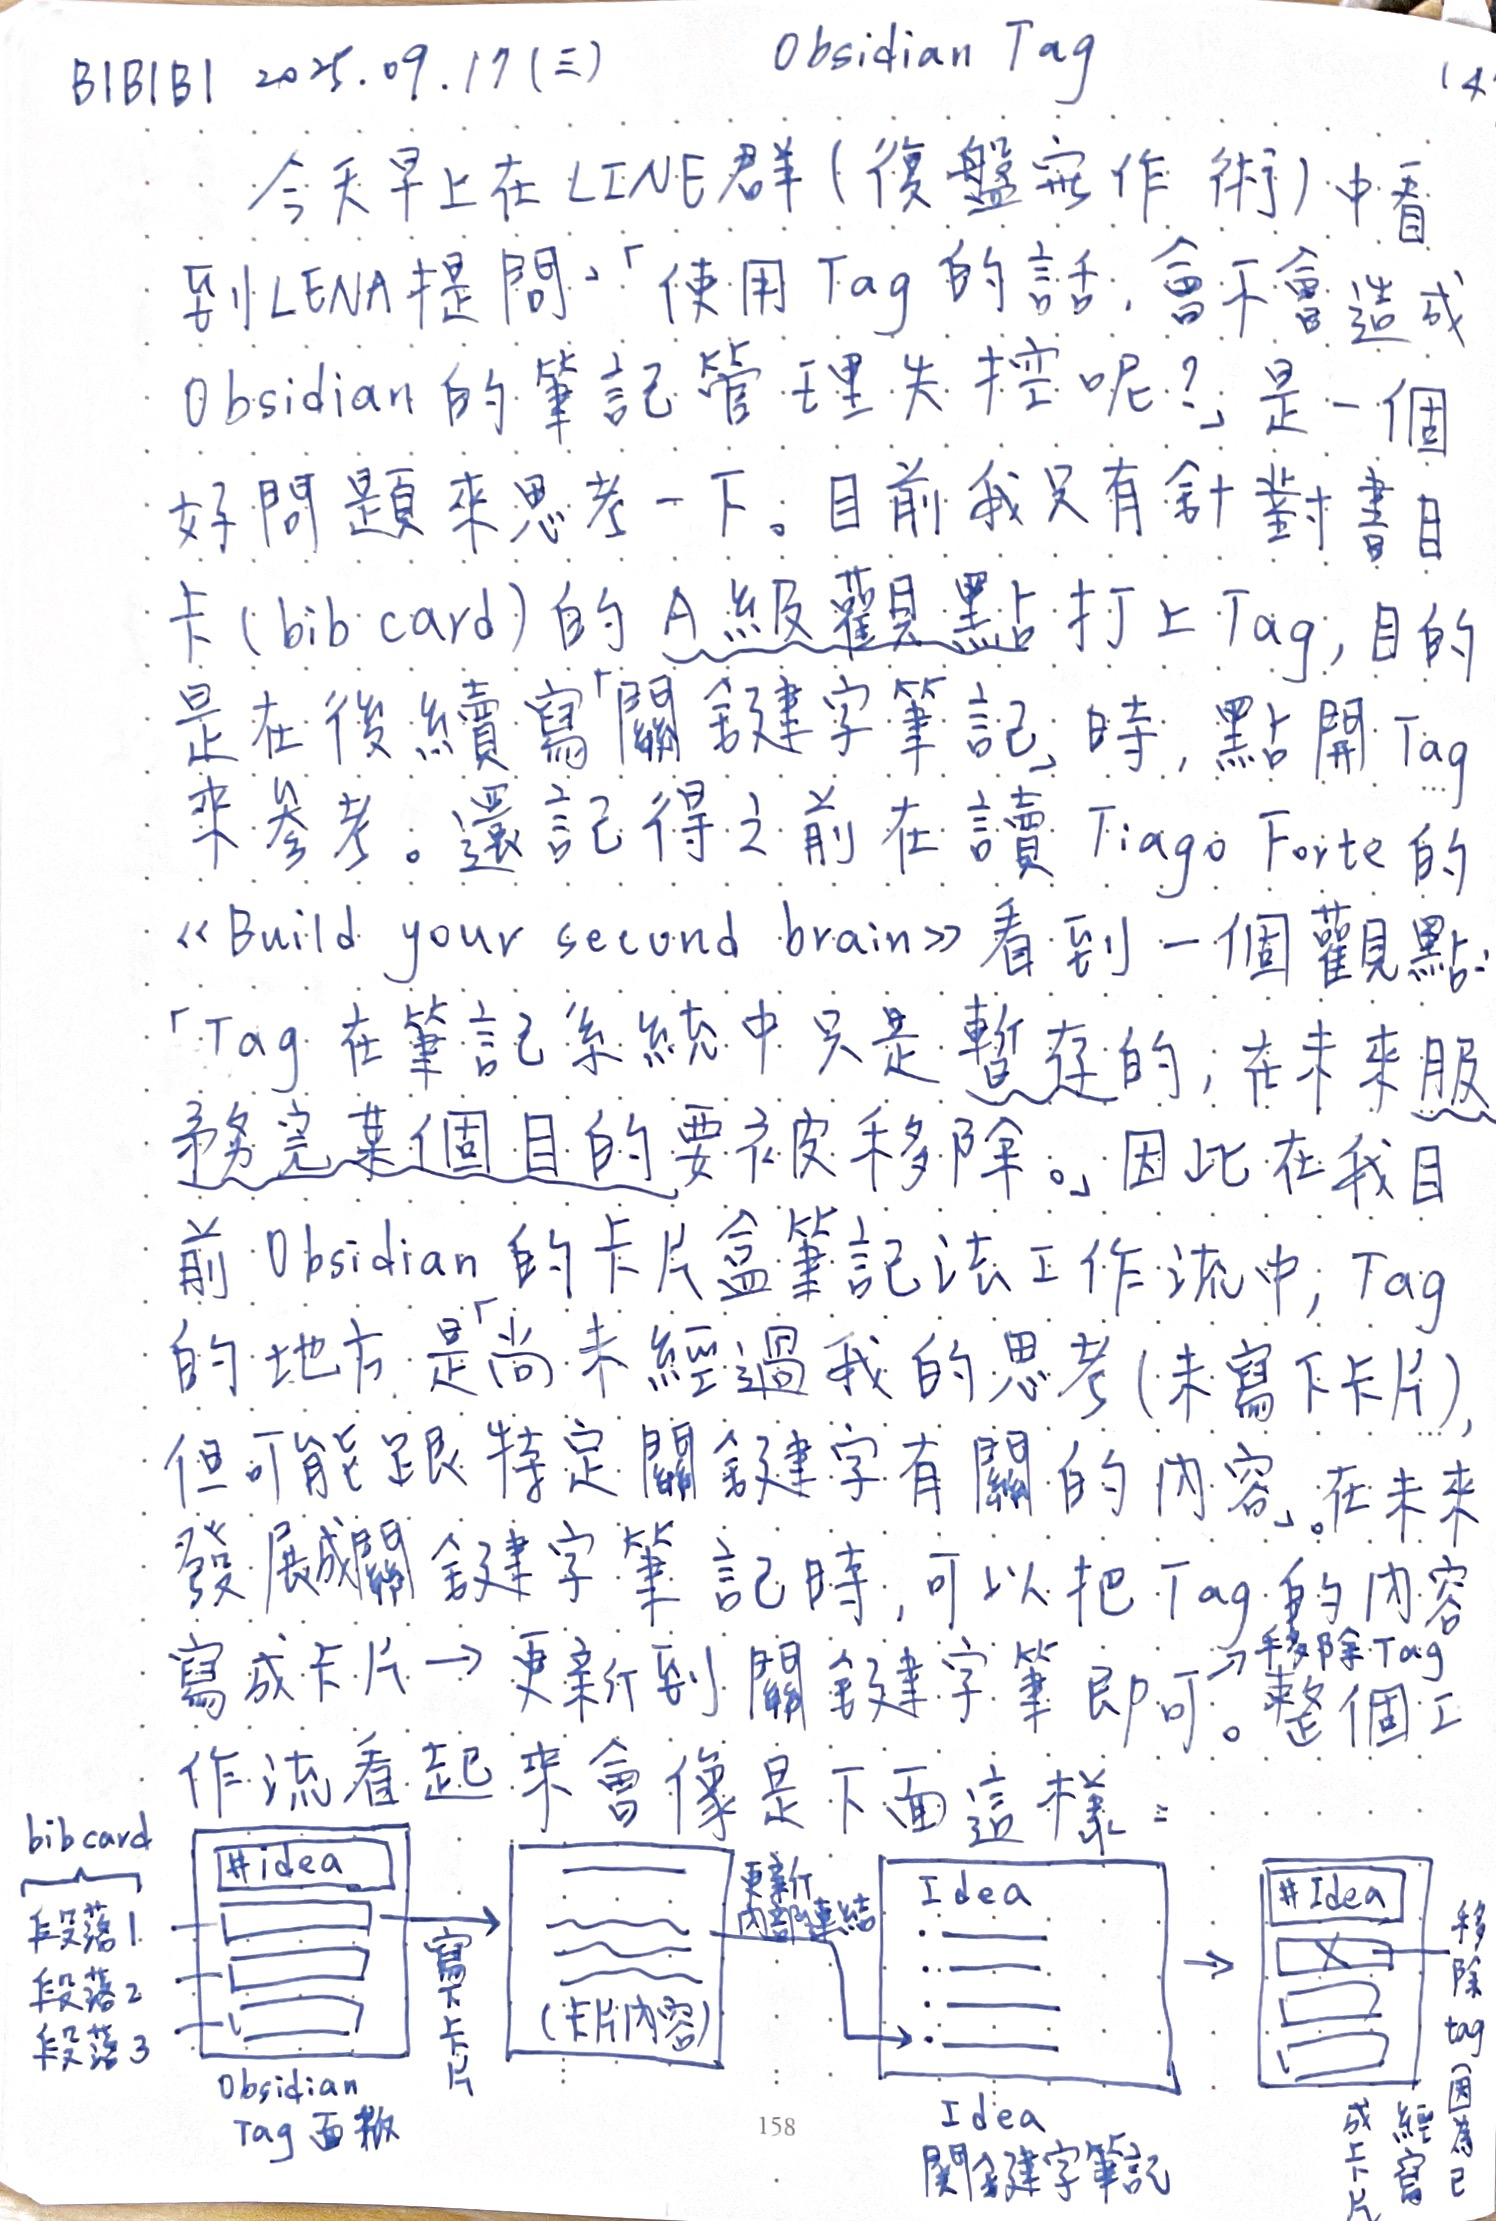 B1B1B1 2025.09.17(三) Obsidian Tag
今天早上在LINE群(復盤寫作術)中看
到LENA提問,「使用Tag的話,會不會造成
Obsidian的筆記管理失控呢?」是一個
好問題來思考一下。目前我只有針對書目
卡(bib card)的A級觀點打上Tag,目的
是在後續寫「關鍵字筆記」時,點開Tag
來參考。還記得之前在讀Tiago Forte的
《Build your second brain》看到一個觀點:
「Tag在筆記系統中只是暫存的,在未來服
務完某個目的要被移除。」因此在我目
前Obsidian的卡片盒筆記法工作流中,Tag
的地方是「尚未經過我的思考(未寫下卡片),
但可能跟特定關鍵字有關的內容」。在未來
發展成關鍵字筆記時,可以把Tag的內容
寫成卡片→更新到關鍵字筆即可→移除Tag。整個工
作流看起來會像是下面這樣:
bib card
段落1
段落2
段落3
#idea
Obsidian
Tag面板
寫下卡片
(卡片內容)
更新
內部連結
Idea
Idea
關鍵字筆記
#Idea
移除tag(因為已
經寫
成卡片
158